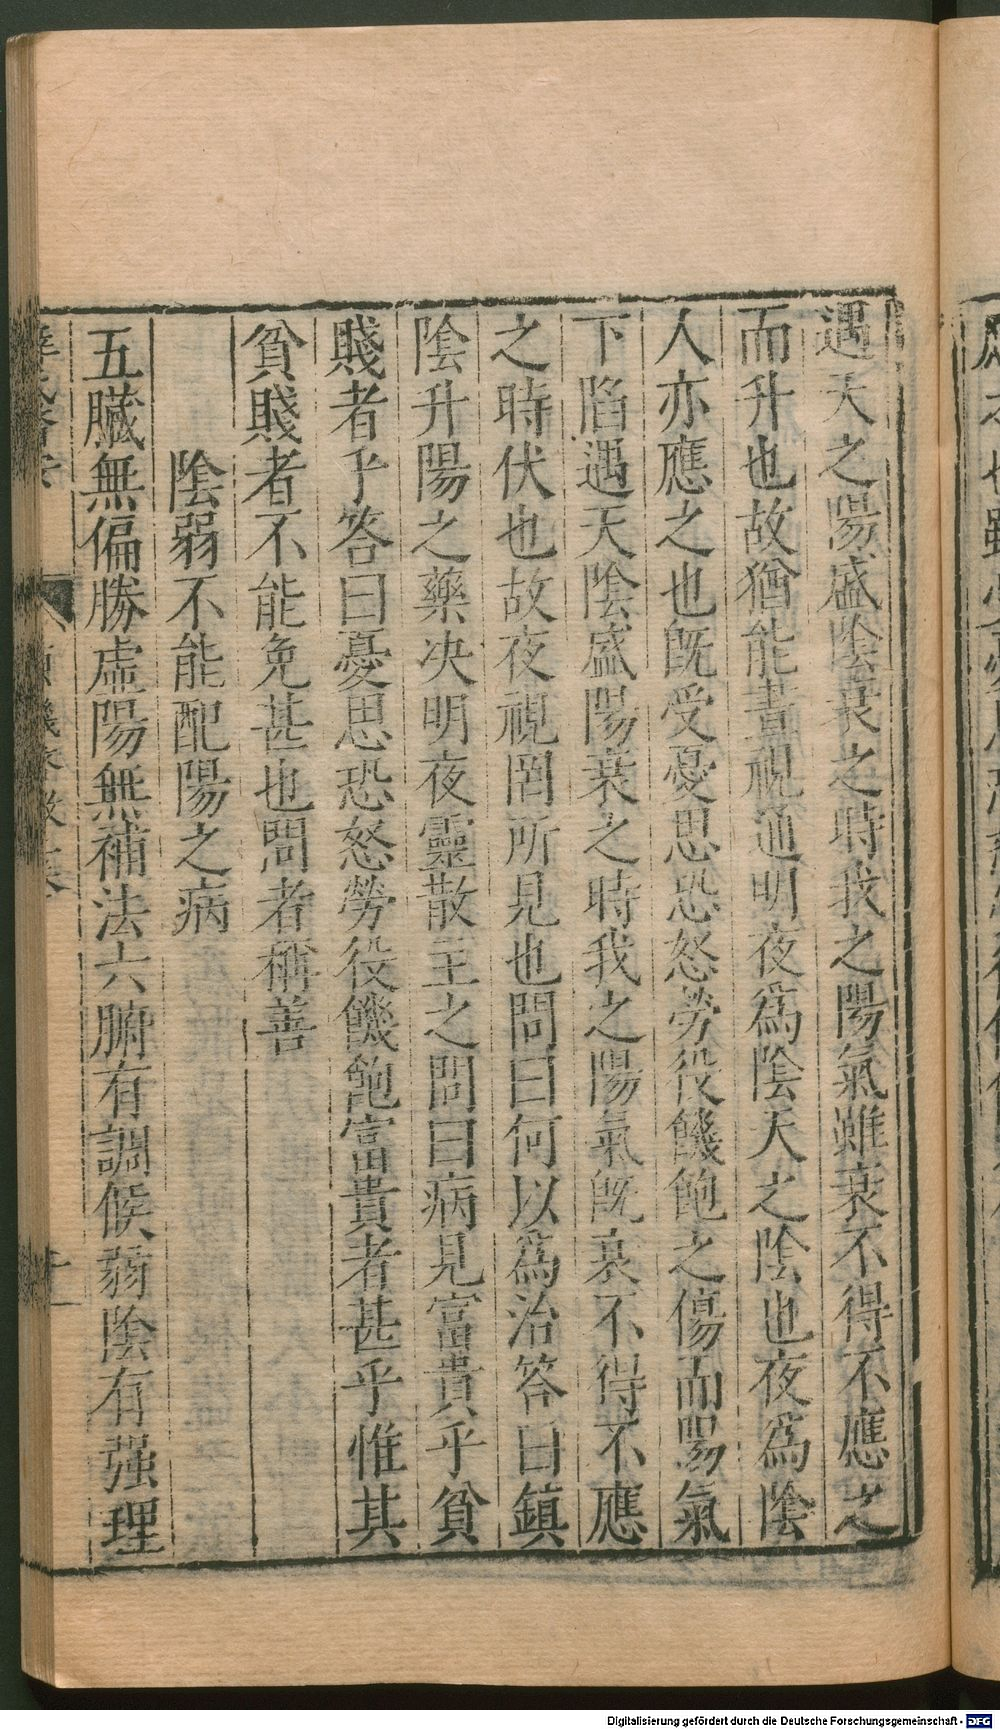 遇天之陽盛陰衰之時我之陽氣雖衰不得不應之
而升也故猶能晝視通明夜爲陰天之陰也夜爲陰
人亦應之也旣受憂思恐怒勞役饑飽之傷而陽氣
下陷遇天陰盛陽衰之時我之陽氣旣衰不得不應
之時伏也故夜視罔所見也問曰何以爲治答曰鎮
陰升陽之藥決明夜靈散主之問曰病見富貴乎貧
賤者乎答曰憂思恐怒勞役饑飽富貴者甚乎惟其
貧賤者不能免甚也問者稱善
陰弱不能配陽之病
五臟無偏勝虛陽無補法六腑有調候弱陰有强理
Digitalisierung gefördert durch die Deutsche Forschungsgemeinschaft - DFG